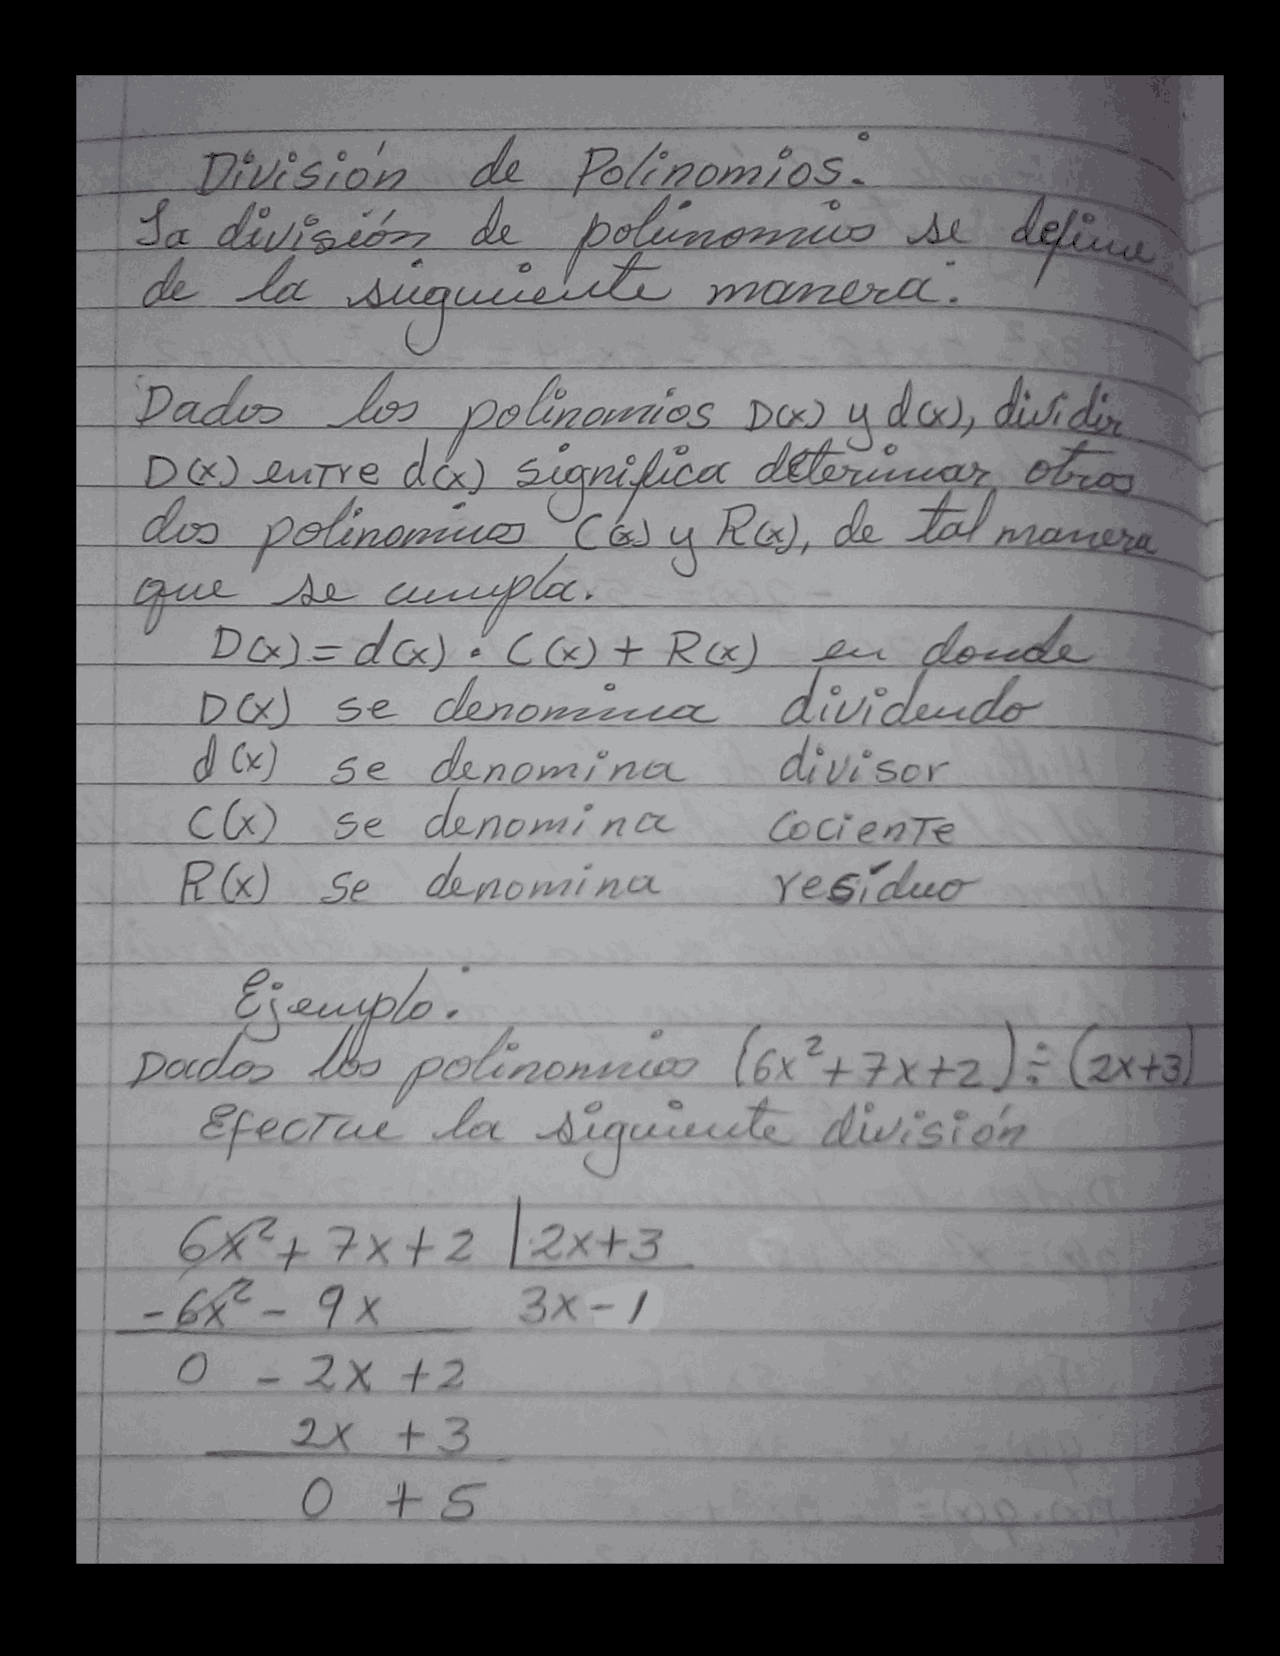 División de Polinomios:
La división de polinomios se define
de la siguiente manera:
Dados los polinomios D(x) y d(x), dividir
D(x) entre d(x) significa determinar otros
dos polinomios C(x) y R(x), de tal manera
que se cumpla.
D(x) = d(x) · C(x) + R(x) en donde
D(x) se denomina dividendo
d(x) se denomina divisor
C(x) se denomina cociente
R(x) se denomina resíduo
Ejemplo:
Dados los polinomios (6x²+7x+2) ÷ (2x+3)
Efectue la siguiente división
6x²+ 7x+2 |2x+3
-6x² - 9x 3x-1
0 - 2x +2
2x +3
0 +5